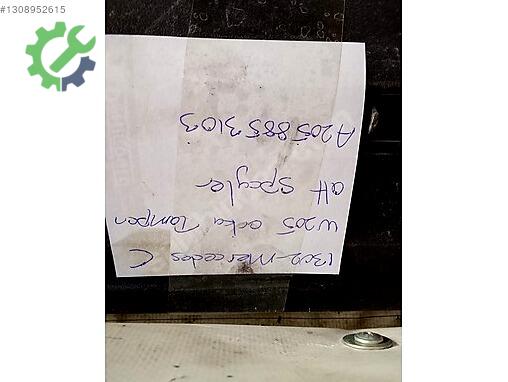 #1308952615
1302-Mercedes C
W205 arka Tampon
alt Spoyler
A205 885 3103